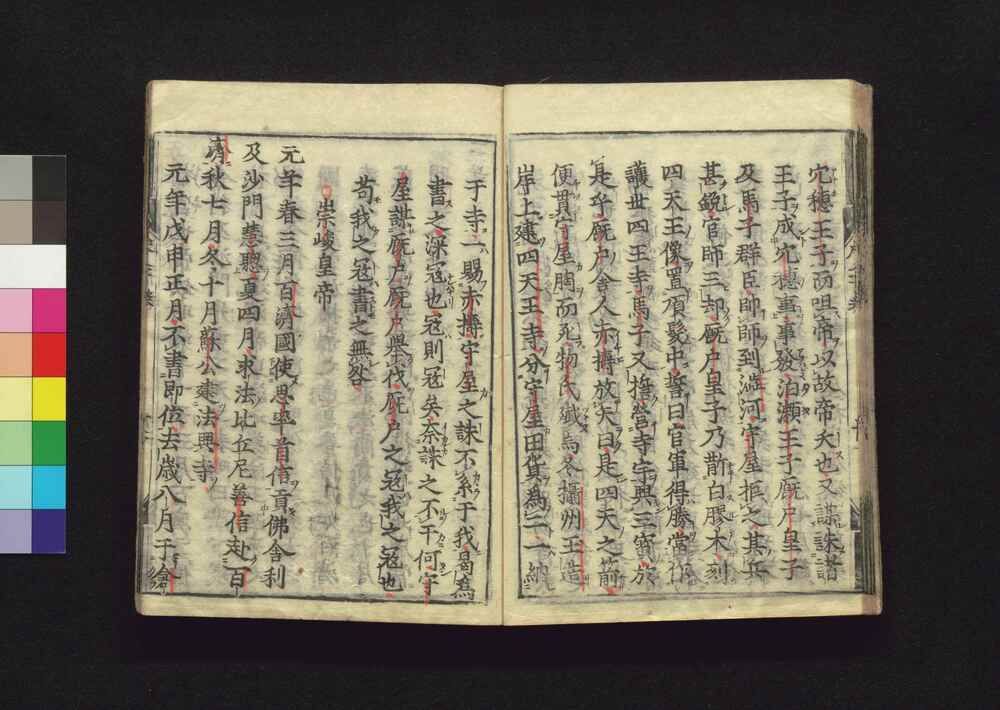 穴穗王子而咀帝以故帝夭也又謀誅諸
王子成穴穗事事發泊瀬王子厩戸皇子
及馬子群臣帥師到澁河守屋拒之其兵
甚鋭官師三却厩戸皇子乃斮白膠木刻
四天王像置頂髮中誓曰官軍得勝當作
護世四王寺馬子又擬營寺宇興三寳於
是乎厩戸舍人赤搏放矢曰是四天之箭
便貫守屋胸而死物氏殱焉冬攝州玉造
岸上建四天王寺分守屋田貨為二一納
于寺一賜赤搏守屋之誅不系于我曷為
書之深冦也冦則冦矣奈誅之不干何守
屋謀厩戸厩戸舉伐厩戸之冦我之冦也
苟我之冦書之無咎
崇峻皇帝
元年春三月百濟國使恩率首信貢佛舍利
及沙門慧聰夏四月求法比丘尼善信赴百
濟秋七月冬十月蘇公建法興寺
元年戊申正月不書即位去歳八月于倉